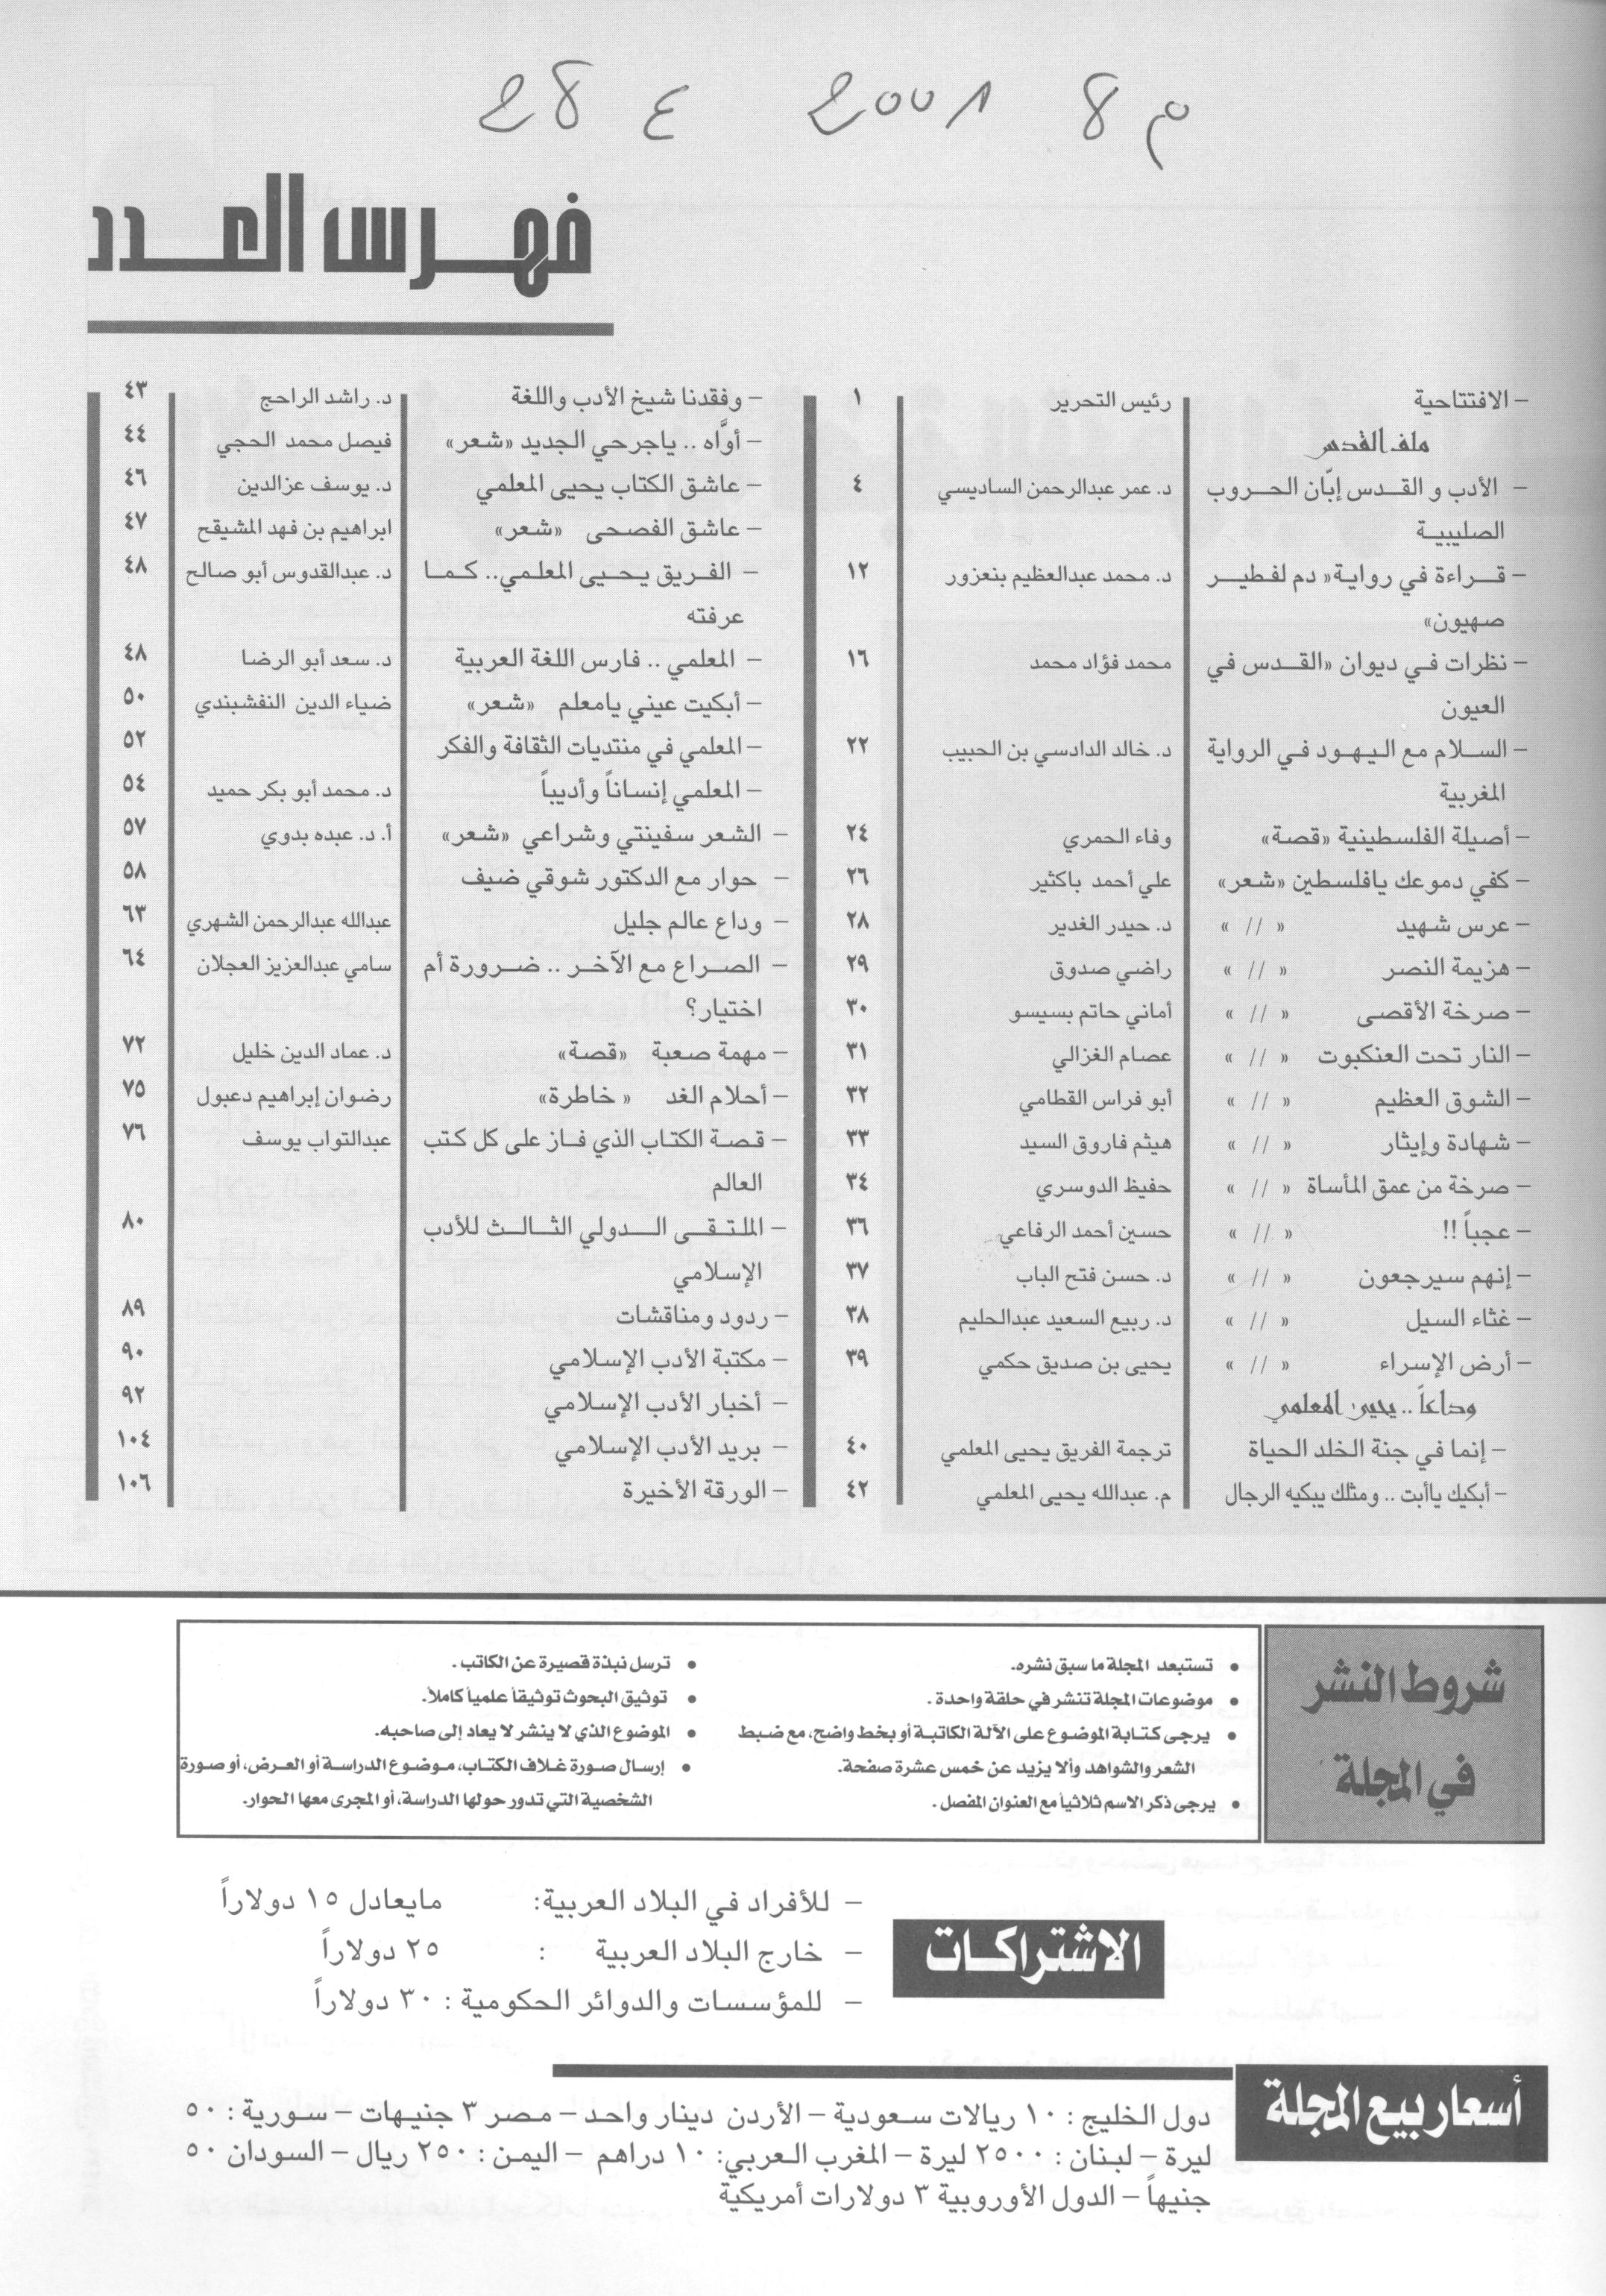 م 8 2001 ع 28
فهرس العدد
– الافتتاحية رئيس التحرير ١
ملف القدس
– الأدب و القدس إبّان الحروب د. عمر عبدالرحمن الساديسي ٤
الصليبية
– قراءة في رواية« دم لفطير د. محمد عبدالعظيم بنعزور ١٢
صهيون»
– نظرات في ديوان «القدس في محمد فؤاد محمد ١٦
العيون
– السلام مع اليهود في الرواية د. خالد الدادسي بن الحبيب ٢٢
المغربية
– أصيلة الفلسطينية «قصة» وفاء الحمري ٢٤
– كفي دموعك يافلسطين «شعر» علي أحمد باكثير ٢٦
– عرس شهيد « // » د. حيدر الغدير ٢٨
– هزيمة النصر « // » راضي صدوق ٢٩
– صرخة الأقصى « // » أماني حاتم بسيسو ٣٠
– النار تحت العنكبوت « // » عصام الغزالي ٣١
– الشوق العظيم « // » أبو فراس القطامي ٣٢
– شهادة وإيثار « // » هيثم فاروق السيد ٣٣
– صرخة من عمق المأساة « // » حفيظ الدوسري ٣٤
– عجباً !! « // » حسين أحمد الرفاعي ٣٦
– إنهم سيرجعون « // » د. حسن فتح الباب ٣٧
– غثاء السيل « // » د. ربيع السعيد عبدالحليم ٣٨
– أرض الإسراء « // » يحيى بن صديق حكمي ٣٩
وداعاً .. يحيى المعلمي
– إنما في جنة الخلد الحياة ترجمة الفريق يحيى المعلمي ٤٠
– أبكيك ياأبت .. ومثلك يبكيه الرجال م. عبدالله يحيى المعلمي ٤٢
– وفقدنا شيخ الأدب واللغة د. راشد الراجح ٤٣
– أوَّاه .. ياجرحي الجديد «شعر» فيصل محمد الحجي ٤٤
– عاشق الكتاب يحيى المعلمي د. يوسف عزالدين ٤٦
– عاشق الفصحى «شعر» ابراهيم بن فهد المشيقح ٤٧
– الفريق يحيى المعلمي.. كما د. عبدالقدوس أبو صالح ٤٨
عرفته
– المعلمي .. فارس اللغة العربية د. سعد أبو الرضا ٤٨
– أبكيت عيني يامعلم «شعر» ضياء الدين النفشبندي ٥٠
– المعلمي في منتديات الثقافة والفكر ٥٢
– المعلمي إنساناً وأديباً د. محمد أبو بكر حميد ٥٤
– الشعر سفينتي وشراعي «شعر» أ. د. عبده بدوي ٥٧
– حوار مع الدكتور شوقي ضيف ٥٨
– وداع عالم جليل عبدالله عبدالرحمن الشهري ٦٣
– الصراع مع الآخر .. ضرورة أم سامي عبدالعزيز العجلان ٦٤
اختيار؟
– مهمة صعبة «قصة» د. عماد الدين خليل ٧٢
– أحلام الغد « خاطرة» رضوان إبراهيم دعبول ٧٥
– قصة الكتاب الذي فاز على كل كتب عبدالتواب يوسف ٧٦
العالم
– الملتقى الدولي الثالث للأدب ٨٠
الإسلامي
– ردود ومناقشات ٨٩
– مكتبة الأدب الإسلامي ٩٠
– أخبار الأدب الإسلامي ٩٢
– بريد الأدب الإسلامي ١٠٤
– الورقة الأخيرة ١٠٦
شروط النشر
في المجلة
• تستبعد المجلة ما سبق نشره.
• موضوعات المجلة تنشر في حلقة واحدة .
• يرجى كتابة الموضوع على الآلة الكاتبة أو بخط واضح، مع ضبط
الشعر والشواهد وألا يزيد عن خمس عشرة صفحة.
• يرجى ذكر الاسم ثلاثياً مع العنوان المفصل .
• ترسل نبذة قصيرة عن الكاتب .
• توثيق البحوث توثيقاً علمياً كاملاً.
• الموضوع الذي لا ينشر لا يعاد إلى صاحبه.
• إرسال صورة غلاف الكتاب، موضوع الدراسة أو العرض، أو صورة
الشخصية التي تدور حولها الدراسة، أو المجرى معها الحوار.
الاشتراكات
– للأفراد في البلاد العربية: مايعادل ١٥ دولاراً
– خارج البلاد العربية : ٢٥ دولاراً
– للمؤسسات والدوائر الحكومية : ٣٠ دولاراً
أسعار بيع المجلة
دول الخليج : ١٠ ريالات سعودية – الأردن دينار واحد – مصر ٣ جنيهات – سورية : ٥٠
ليرة – لبنان : ٢٥٠٠ ليرة – المغرب العربي: ١٠ دراهم – اليمن : ٢٥٠ ريال – السودان ٥٠
جنيهاً – الدول الأوروبية ٣ دولارات أمريكية